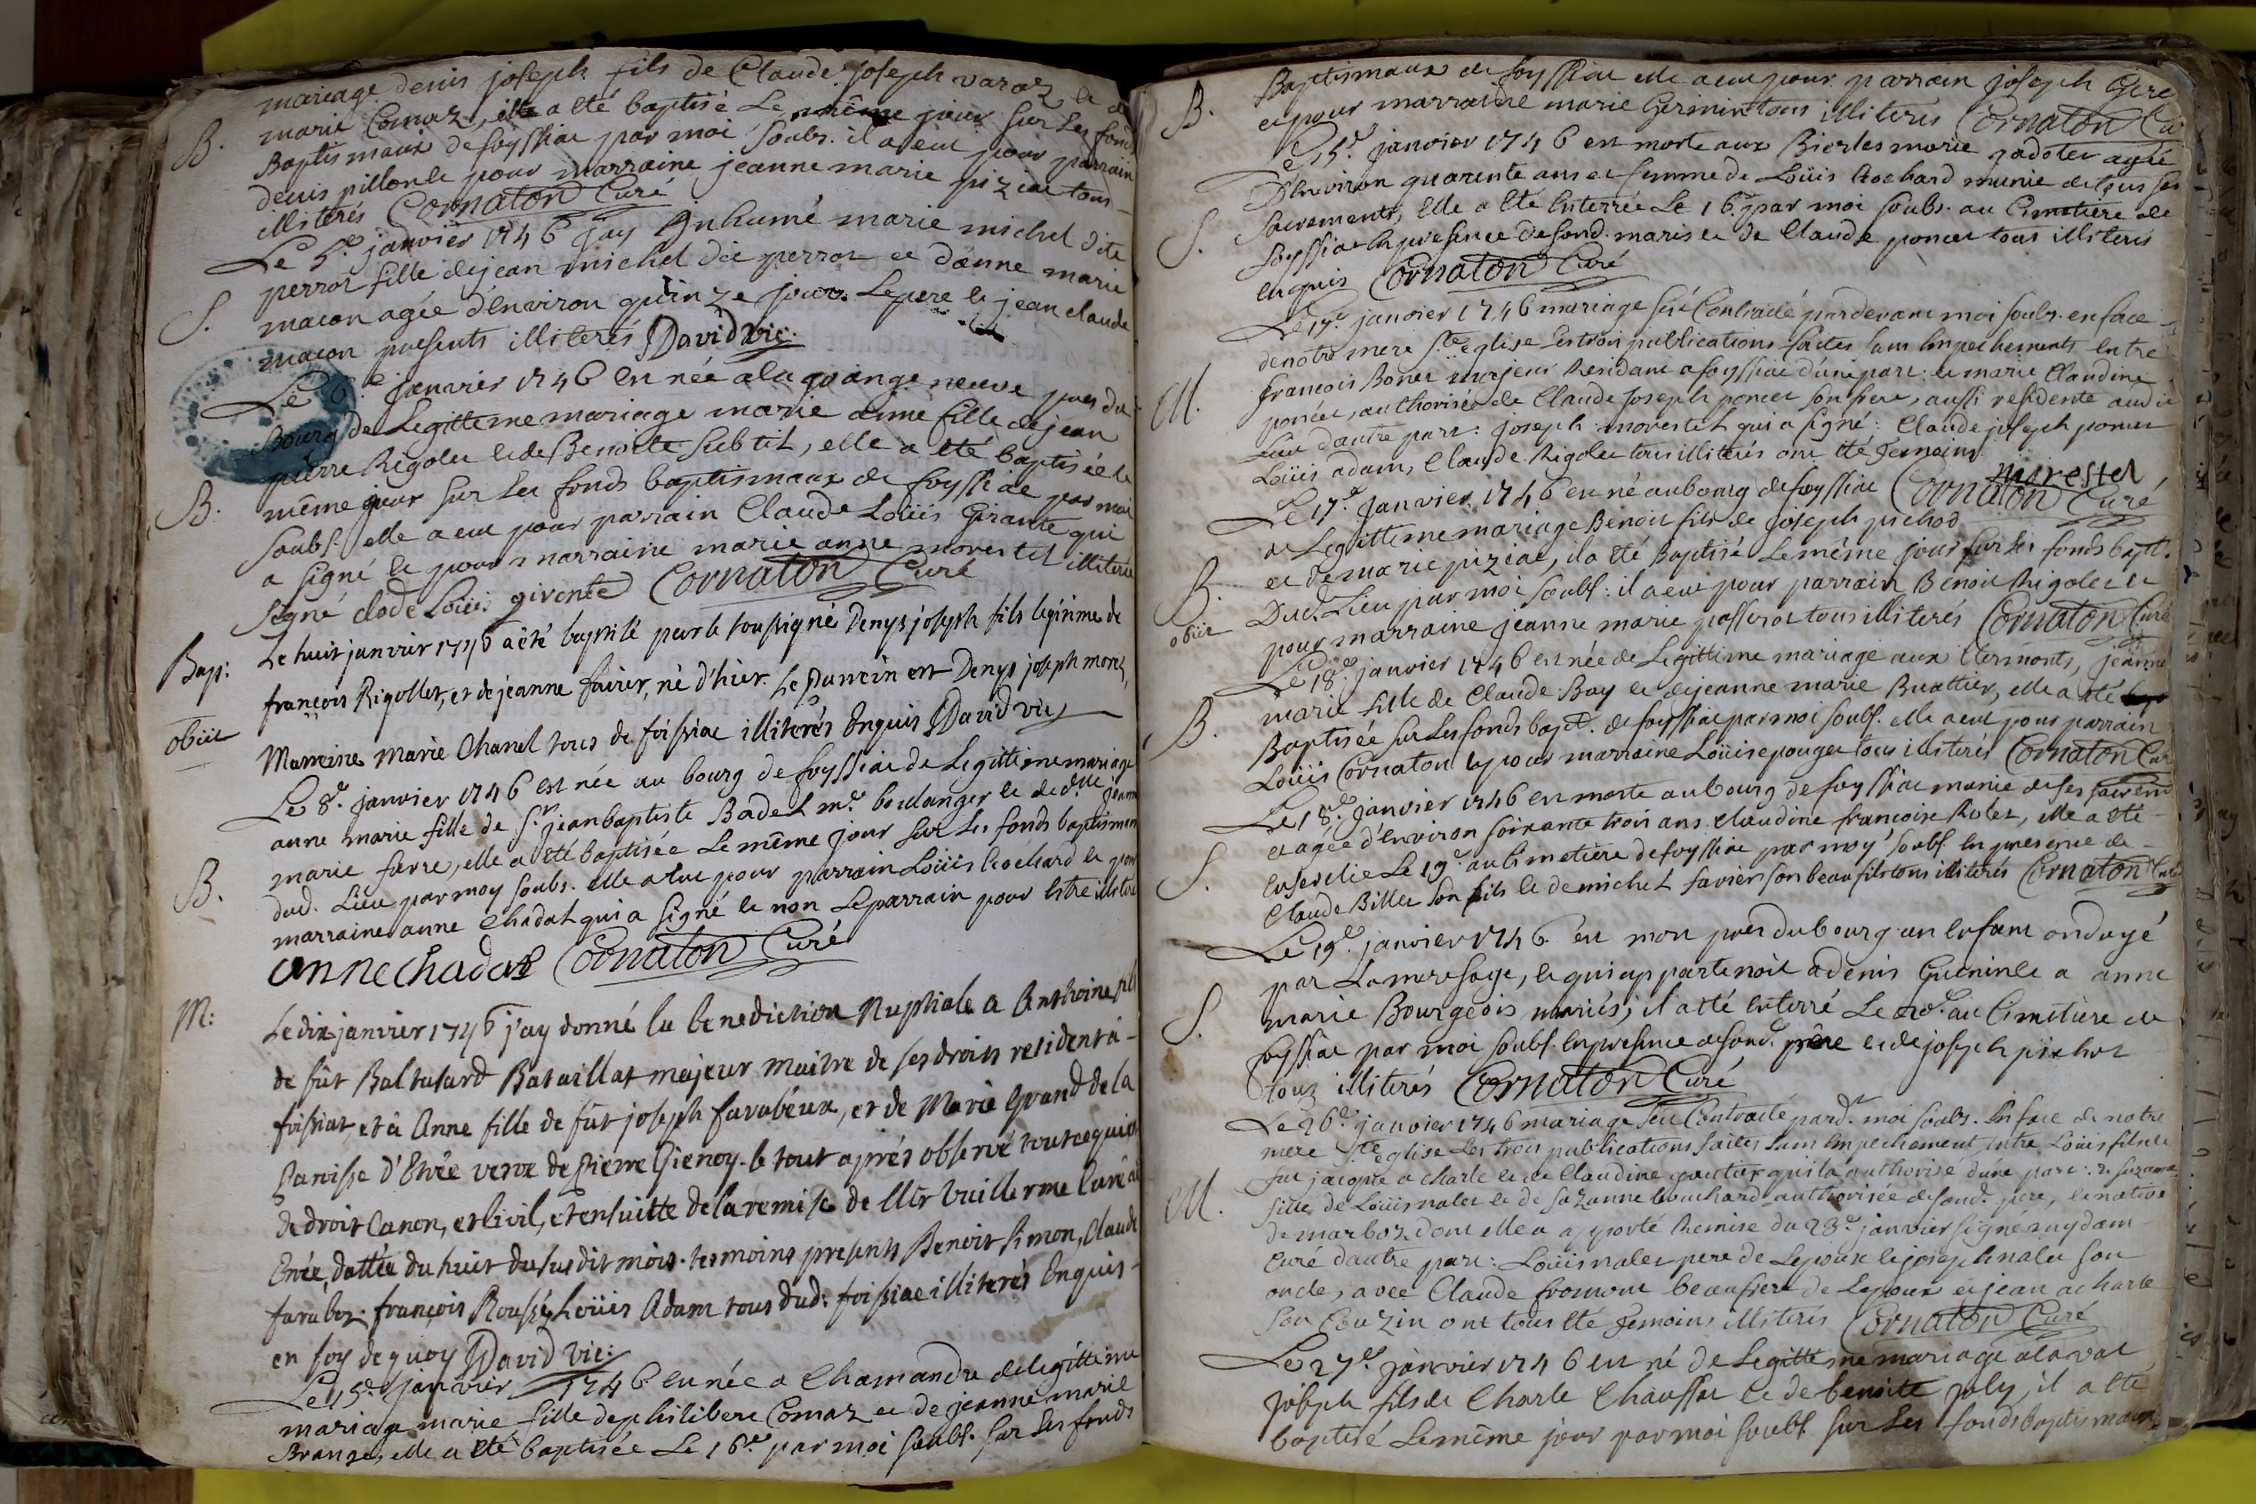 mariage denis joseph fils de Claude joseph varoz et de
B. marie Comaz, elle a eté baptisé Le même jour sur Les fonds
Baptismaux de foyssiac par moi Soubs. il a eut pour parrain
denis pillon et pour marraine jeanne marie piziac tous
illiterés Cornaton Curé
Le 5e. janvier 1746 jay Inhumé marie michel dite
perrot fille de jean michel dit perrot et danne marie
S. macon agée d'environ quinze jours. Le pere et jean claude
macon presents illiterés David vic:
Le 6e. janvier 1746 est née a la grange neuve pres du
Bourg de Legittime mariage marie anne fille de jean
pierre Rigolet et de Benoite Subtil, elle a eté baptisée le
B. même jour sur Les fonds baptismaux de foyssiac par moi
Soubs. elle a eut pour parrain Claude Loüis Girante qui
a signé et pour marraine marie anne morestel illiterée
Signé clode Loüis girente Cornaton Curé
Bap: Le huit janvier 1746 a été baptisé par le soussigné Denys joseph fils legitime de
françois Rigollet, et de jeanne favier, né d'hier. Le Parrein est Denys joseph
obiit Marreine Marie Chanel tous de foissiac illiterés Enquis David vic
Le 8e. janvier 1746 est née au bourg de foyssiac de Legittime mariage
anne marie fille de Sr. jean baptiste Badel me. boulanger et de dlle jeanne
marie farre, elle a eté baptisée Le même jour sur Les fonds baptismaux
B. dud. Lieu par moy soubs. elle a eut pour parrain Loüis Rochard et pour
marraine anne Chadal qui a signé et non Le parrain pour Estre illiteré
anne chadal Cornaton Curé
M: Le dix janvier 1746 j'ay donné la benediction Nuptiale a Anthoine fils
de fût Baltasard Bataillat majeur maitre de ses droits resident à
foissiat, et à Anne fille de fût joseph farabéux, et de Marie Grand de la
Paroisse d'Etrée veuve de Pierre Gieroy. le tout après observé tout ce qui est
de droit Canon, et Civil, et ensuitte de la remise de Mr Vuillerme Curé a
Etrée, dattée du huit du susdit mois. tesmoins presents Benoit Simon, Claude
faraboz. françois Roussé, Loüis Adam tous dud: foissiac illiterés Enquis
en foy de quoy David vic:
Le 15e. janvier 1746 est née a Chamandre de legittime
mariage marie fille de philibert Comaz et de jeanne marie
Brange, elle a eté baptisée Le 16e. par moi soubs. sur Les fonds
B. Baptismaux de foyssiac elle a eut pour parrain joseph
et pour marraine marie Germin tous illiterés Cornaton Cu
Le 15e. janvier 1746 est morte aux Bioles marie agée
D'Environ quarente ans et femme de Loüis Rochard munie de tous ses
S. Sacrements, Elle a eté Enterrée Le 16e. par moi soubs. au Cimetière de
foyssiac En presence de sond. maris et de Claude poncet tous illiterés
enquis Cornaton Curé
Le 17e. janvier 1746 mariage s'est Contracté par devant moi soubs. en face
de notre mere Ste. eglise Les trois publications faites sans Empechements entre
M. françois Bonet majeur Residant a foyssiac d'une part: et marie Claudine
poncet, authorisée de Claude Joseph poncet son frere, aussi residente audit
Lieu dautre part: joseph morestel qui a signé: Claude joseph poncet
Loüis adam, Claude Rigolet tous illiterés ont eté temoins
morestel
Le 17e. Janvier 1746 est né au bourg de foyssiac Cornaton Curé
de Legittime mariage Benoit fils de joseph pichod
B. et de marie piziac, il a eté Baptisé Le même jour sur les fonds bapt.
obiit Dud. Lieu par moi soubs: il a eut pour parrain Benoit Rigolet et
pour marraine jeanne marie passerot tous illiterés Cornaton Curé
Le 18e. janvier 1746 est née de Legittime mariage aux Clermonts, jeanne
marie fille de Claude Bay et de jeanne marie Buattier, elle a eté
B. Baptisée sur Les fonds bapt. de foyssiac par moi soubs. elle a eut pour parrain
Loüis Cornaton et pour marraine Loüise pouget tous illiterés Cornaton Cur
Le 18e. janvier 1746 est morte au bourg de foyssiac munie de ses sacrem
et agée d'Environ soixante trois ans claudine françoise Rolet, elle a eté
S. Ensevelie Le 19e. au Cimetiere de foyssiac par moy soubs. En presence de
Claude Billet son fils et de michel favier son beau fils tous illiterés Cornaton Curé
Le 19e. janvier 1746 est mort pres du bourg un Enfant ondoyé
par La mere sage, et qui appartenoit a denis Guenin et a anne
S. marie Bourgeois mariés; il a eté Enterré Le 20e. au Cimitiere de
foyssiac par moi soubs. En presence de sond. père et de joseph pichot
tous illiterés Cornaton Curé
Le 26e. janvier 1746 mariage s'est Contracté pard. moi soubs. En face de notre
mere Ste eglise Les trois publications faites sans Empechement entre Loüis fils de
fut jacque a charle et de Claudine gautier qui la authorisé dune part: et suzanne
M. fille de Loüis nalet et de Suzanne bouchard authorisée de sond. pere, et native
de marboz dont elle a aporté Remise du 23e. janvier signé nuydam
Curé dautre part: Loüis nalet pere de Lepouse et joseph nalet son
oncle, avec Claude fromont beaufrere de Lepoux et jean acharle
son Couzin ont tous eté temoins illiterés Cornaton Curé
Le 27e. janvier 1746 est né de Legittime mariage a laval
joseph fils de Charle Chausset et de benoite joly, il a eté
baptisé Le même jour par moi soubs. sur Les fonds baptismaux